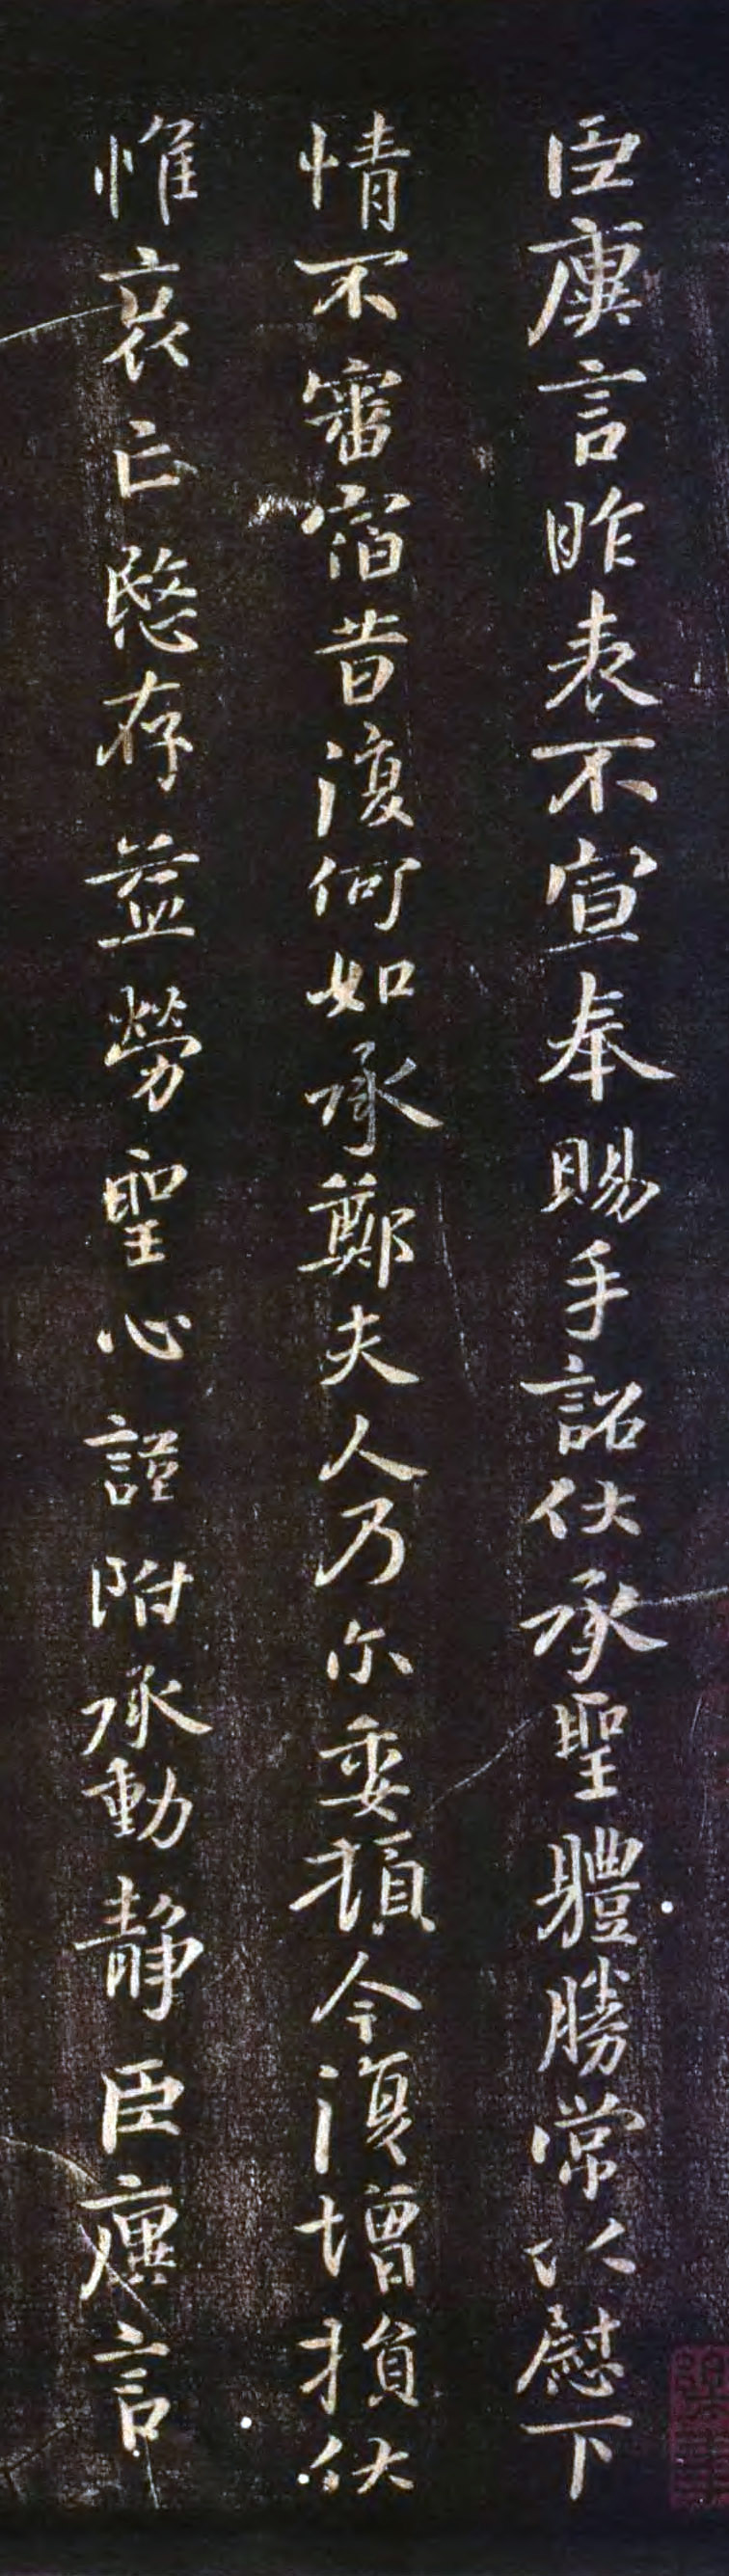 臣廙言昨表不宣奉賜手詔伏承聖體勝常以慰下
情不審宿昔復何如承鄭夫人乃尒委頓今復增損伏
惟哀亡愍存益勞聖心謹附承動静臣廙言